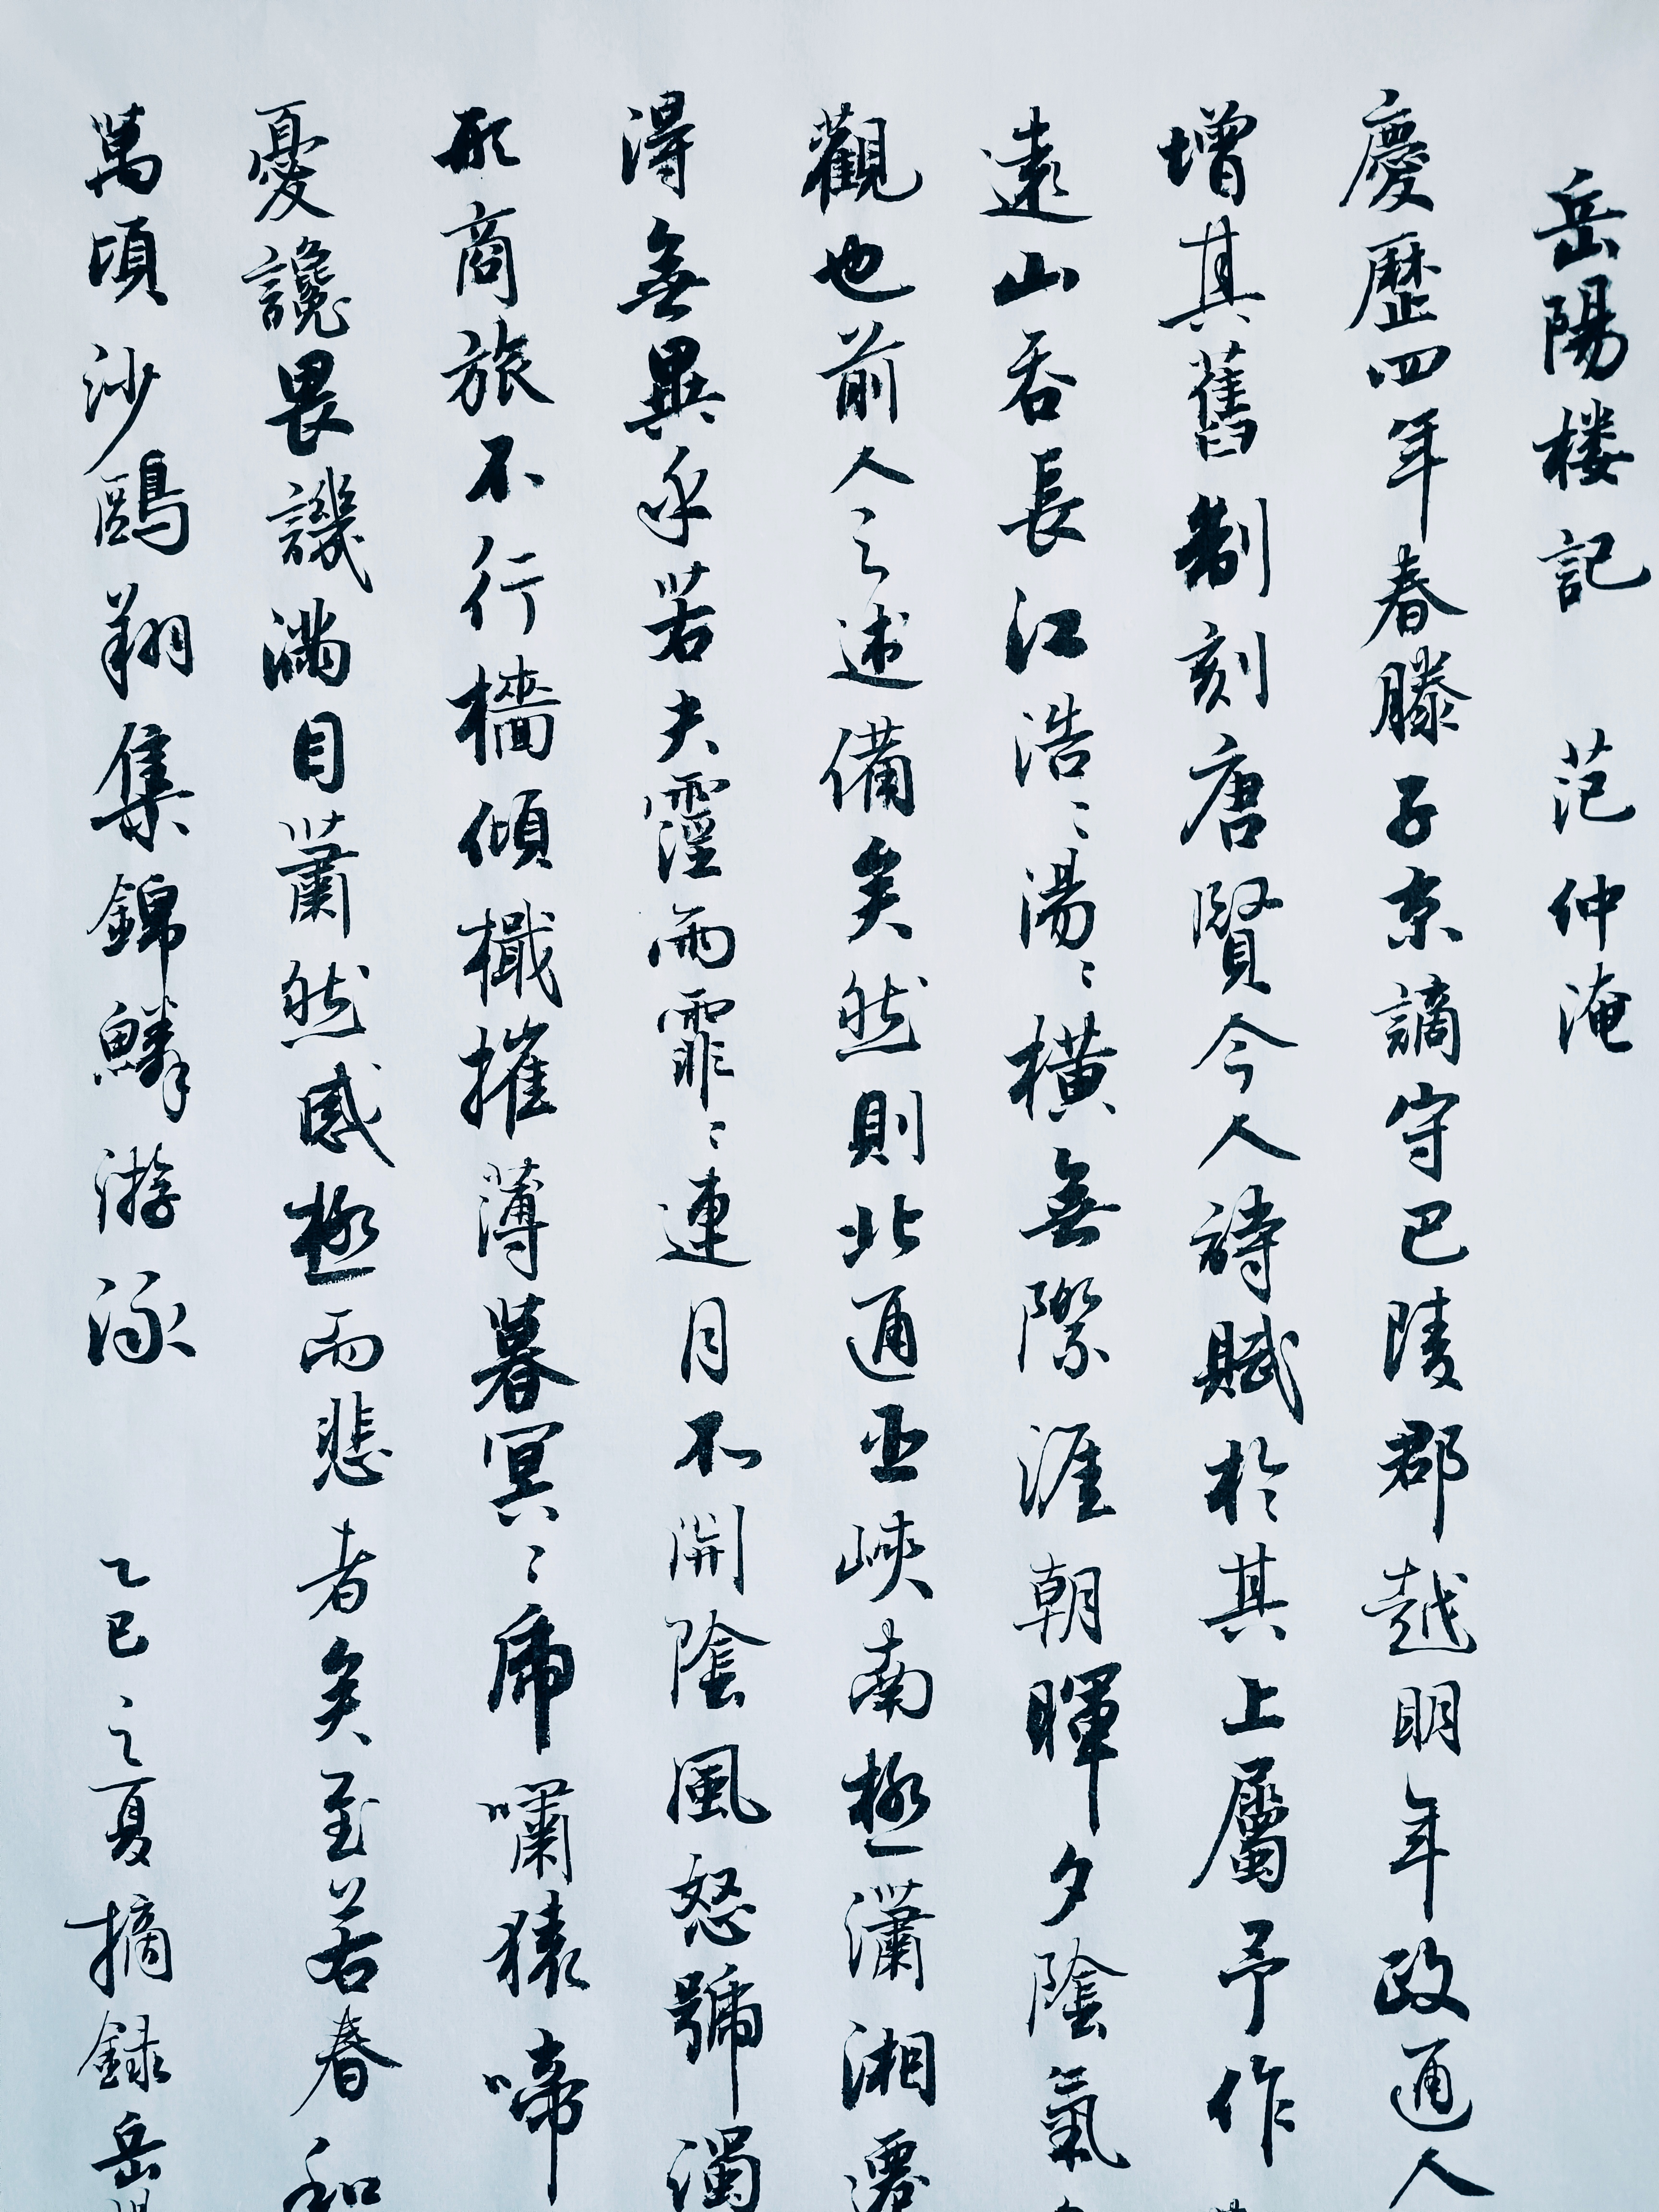 岳陽楼記 范仲淹
慶歷四年春滕子京謫守巴陵郡越明年政通人
增其舊制刻唐賢今人詩賦於其上屬予作
遠山吞長江浩〻湯〻橫無際涯朝暉夕陰氣
觀也前人之述備矣然則北通巫峽南極瀟湘遷
得無異乎若夫霪雨霏〻連月不開陰風怒號濁
形商旅不行檣傾檝摧薄暮冥〻虎嘯猿啼
憂讒畏譏滿目蕭然感極而悲者矣至若春和
萬頃沙鷗翔集錦鱗游泳 乙巳之夏摘録岳